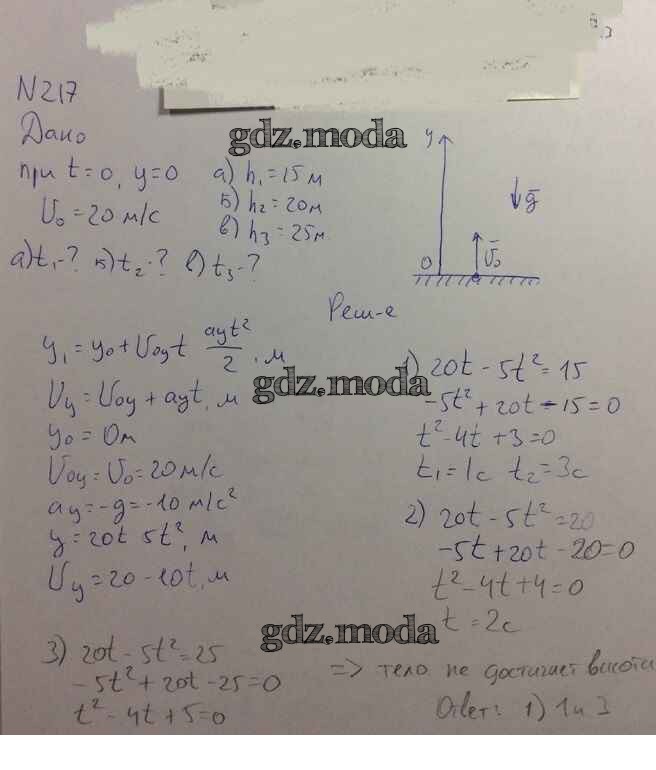 N217
Дано
gdz.moda
при t=0, y=0 а) h₁=15м
U₀=20 м/с б) h₂=20м
в) h₃=25м
а) t₁-? б) t₂-? в) t₃-?
y
g
O
U₀
Реш-е
y₁=y₀+U₀yt ayt²/2, м
gdz.moda
Uy=U₀y+ayt, м
y₀=0м
U₀y=U₀=20м/с
ay=-g=-10 м/с²
y=20t 5t², м
Uy=20-10t, м
1) 20t-5t²=15
-5t²+20t-15=0
t²-4t+3=0
t₁=1c t₂=3c
2) 20t-5t²=20
-5t+20t-20=0
t²-4t+4=0
t=2c
gdz.moda
3) 20t-5t²=25
-5t²+20t-25=0
t²-4t+5=0
=> тело не достигает высоты
Ответ: 1) 1и3